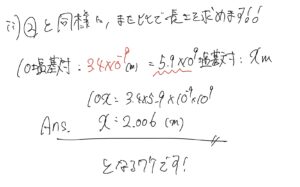 ii) ②と同様に、また比で長さを求めます!!
10塩基対：3.4×10⁻⁹(m) = 5.9×10⁹塩基対：xm
10x = 3.4×5.9×10⁻⁹×10⁹
Ans. x = 2.006 (m)
となるワケです!